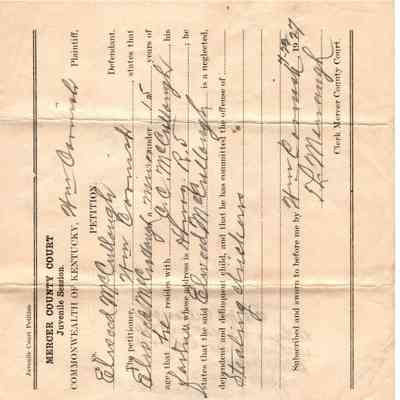 Juvenile Court Petition
MERCER COUNTY COURT
Juvenile Session.
COMMONWEALTH OF KENTUCKY, Wm Coomick Plaintiff,
Vs. PETITION
Elwood McCullough Defendant.
The petitioner, Wm Coomick states that
Elwood McCullough a under 15 years of
age; that he resides with J.C. McCullough his
whose address is R 5 ; he
states that the said Elwood McCullough is a neglected,
dependent and delinquent child, and that he has committed the offense of
Stealing chickens
Subscribed and sworn to before me by Wm Coomick 1927
Clerk Mercer County Court